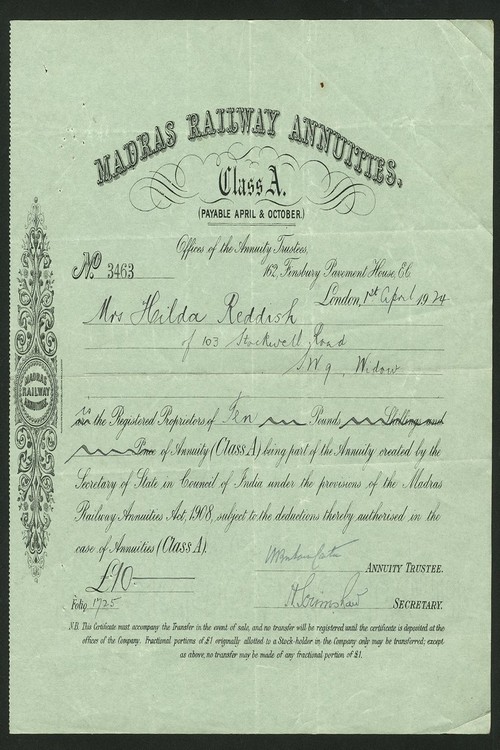 MADRAS RAILWAY ANNUITIES.
Class A.
(PAYABLE APRIL & OCTOBER.)
Offices of the Annuity Trustees,
No 3463
162, Finsbury Pavement House, E.C.
London, 1st April 1924
Mrs Hilda Reddish
of 103 Stockwell Road
S.W 9, Widow
MADRAS
RAILWAY
ANNUITIES.
is the Registered Proprietors of Ten Pounds Shillings and
Pence of Annuity (Class A) being part of the Annuity created by the
Secretary of State in Council of India under the provisions of the Madras
Railway Annuities Act, 1908, subject to the deductions thereby authorised in the
case of Annuities (Class A).
ANNUITY TRUSTEE.
£10
Folio 1725
SECRETARY.
N.B. This Certificate must accompany the Transfer in the event of sale, and no transfer will be registered until the certificate is deposited at the
offices of the Company. Fractional portions of £1 originally allotted to a Stock-holder in the Company only may be transferred; except
as above, no transfer may be made of any fractional portion of £1.